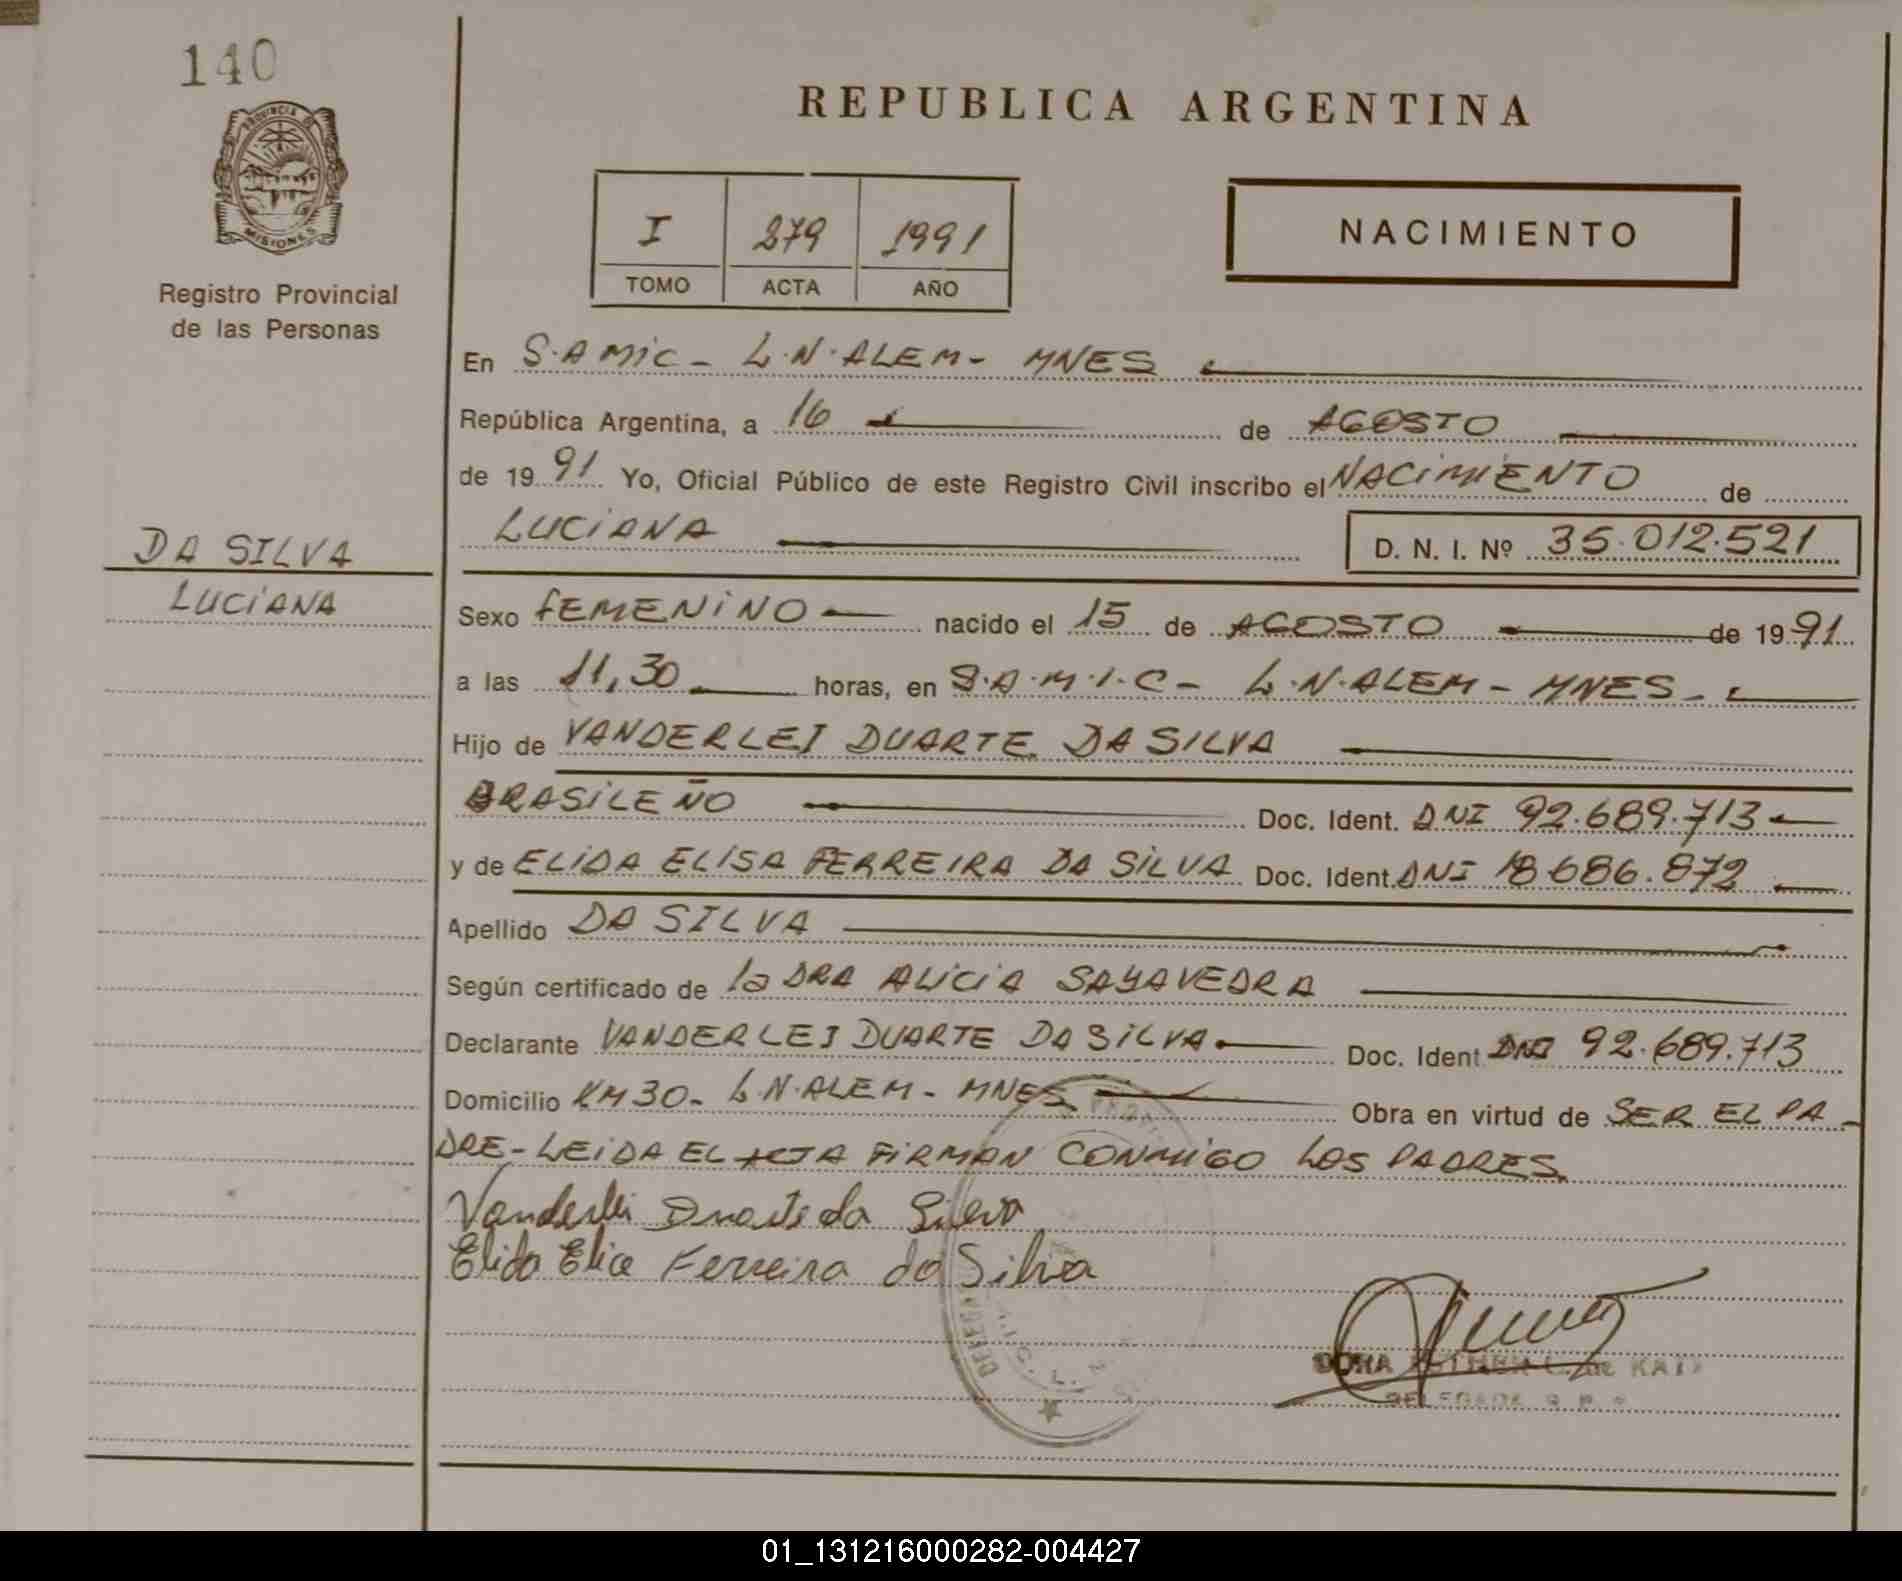 140
PROVINCIA DE
MISIONES
Registro Provincial
de las Personas
DA SILVA
LUCIANA
REPUBLICA ARGENTINA
I 279 1991
TOMO ACTA AÑO
NACIMIENTO
En S.A MiC - L.N.ALEM - MNES
República Argentina, a 16 de AGOSTO
de 1991 Yo, Oficial Público de este Registro Civil inscribo el NACIMIENTO de
LUCIANA D. N. I. Nº 35.012.521
Sexo FEMENINO nacido el 15 de AGOSTO de 1991
a las 11,30 horas, en S.A.M.I.C - L.N.ALEM - MNES -
Hijo de VANDERLEI DUARTE DA SILVA
BRASILEÑO Doc. Ident. DNI 92.689.713
y de ELIDA ELISA FERREIRA DA SILVA Doc. Ident. DNI 18.686.872
Apellido DA SILVA
Según certificado de la DRA ALICIA SAYAVEDRA
Declarante VANDERLEI DUARTE DA SILVA Doc. Ident DNI 92.689.713
Domicilio KM 30 - L.N.ALEM - MNES Obra en virtud de SER EL PA-
DRE - LEIDA EL ACTA FIRMAN CONMIGO LOS PADRES
Vanderlei Duarte da Silva
Elida Elice Ferreira da Silva
KAT
DELEGADA
01_131216000282-004427